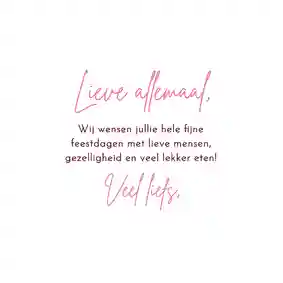 Lieve allemaal,
Wij wensen jullie hele fijne
feestdagen met lieve mensen,
gezelligheid en veel lekker eten!
Veel liefs,